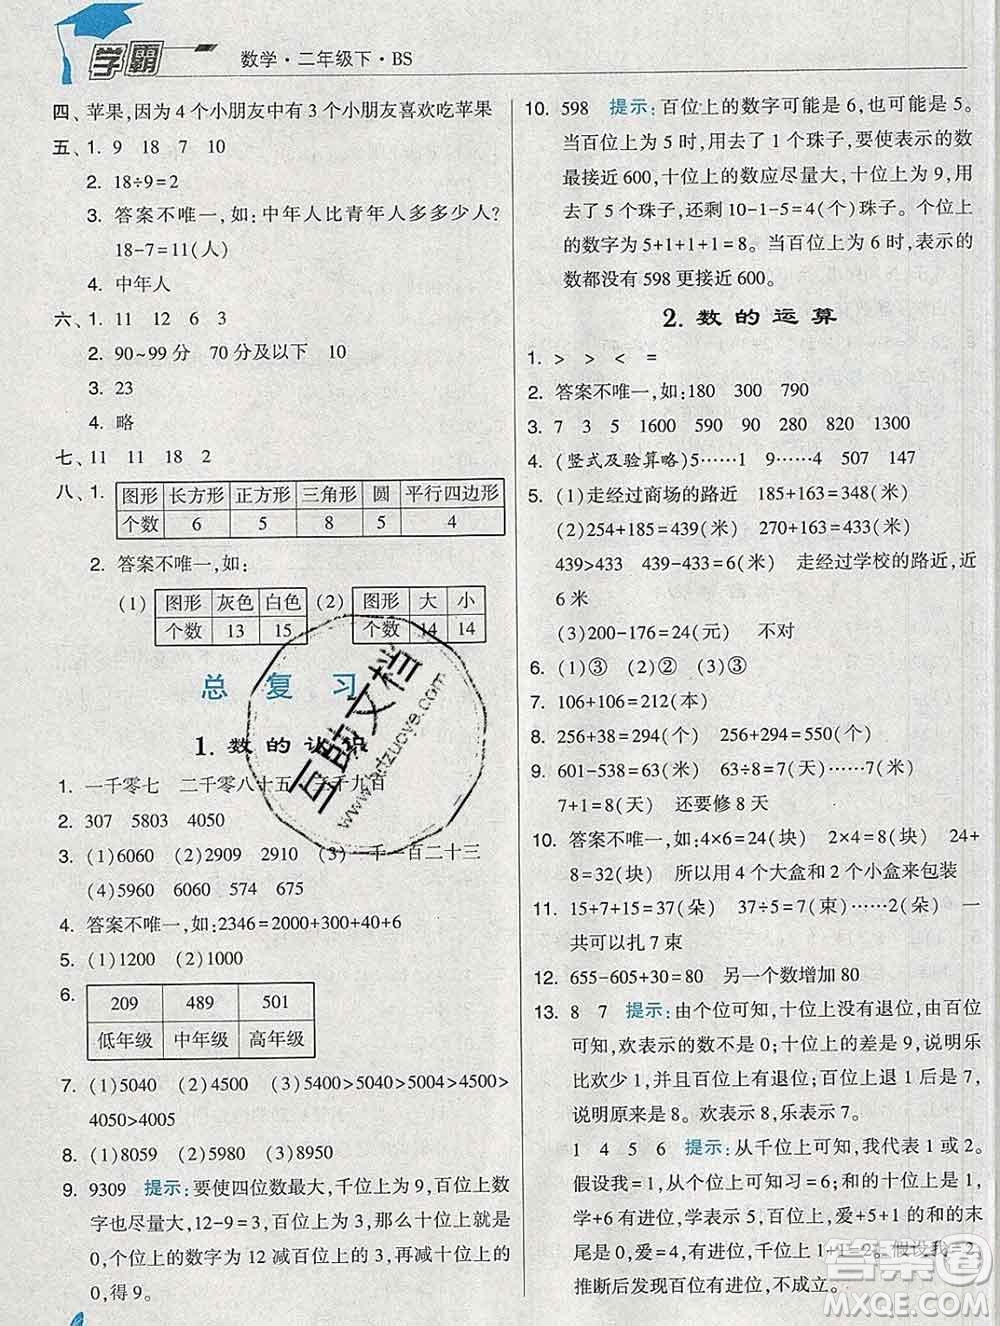 学霸 数学·二年级下·BS
四、苹果,因为4个小朋友中有3个小朋友喜欢吃苹果
五、1. 9 18 7 10
2. 18÷9=2
3. 答案不唯一,如:中年人比青年人多多少人?
18-7=11(人)
4. 中年人
六、1. 11 12 6 3
2. 90~99分 70分及以下 10
3. 23
4. 略
七、11 11 18 2
八、1.
图形 长方形 正方形 三角形 圆 平行四边形
个数 6 5 8 5 4
2. 答案不唯一,如:
(1) 图形 灰色 白色 (2) 图形 大 小
个数 13 15 个数 14 14
总 复 习
1. 数的认识
1. 一千零七 二千零八十五 千九百
2. 307 5803 4050
3. (1)6060 (2)2909 2910 (3)一千一百二十三
(4)5960 6060 574 675
4. 答案不唯一,如:2346=2000+300+40+6
5. (1)1200 (2)1000
6.
209 489 501
低年级 中年级 高年级
7. (1)5040 (2)4500 (3)5400>5040>5004>4500>
4050>4005
8. (1)8059 (2)5980 (3)8950
9. 9309 提示:要使四位数最大,千位上为9,百位上数
字也尽量大,12-9=3,百位上为3,那么十位上就是
0,个位上的数字为12减百位上的3,减十位上的
0,得9。
10. 598 提示:百位上的数字可能是6,也可能是5。
当百位上为5时,用去了1个珠子,要使表示的数
最接近600,十位上的数应尽量大,十位上为9,用
去了5个珠子,还剩10-1-5=4(个)珠子。个位上
的数字为5+1+1+1=8。当百位上为6时,表示的
数都没有598更接近600。
2. 数的运算
1. > > < =
2. 答案不唯一,如:180 300 790
3. 7 3 5 1600 590 90 280 820 1300
4. (竖式及验算略)5……1 9……4 507 147
5. (1)走经过商场的路近 185+163=348(米)
(2)254+185=439(米) 270+163=433(米)
439>433 439-433=6(米) 走经过学校的路近,近
6米
(3)200-176=24(元) 不对
6. (1)③ (2)② (3)③
7. 106+106=212(本)
8. 256+38=294(个) 256+294=550(个)
9. 601-538=63(米) 63÷8=7(天)……7(米)
7+1=8(天) 还要修8天
10. 答案不唯一,如:4×6=24(块) 2×4=8(块) 24+
8=32(块) 所以用4个大盒和2个小盒来包装
11. 15+7+15=37(朵) 37÷5=7(束)……2(朵) 一
共可以扎7束
12. 655-605+30=80 另一个数增加80
13. 8 7 提示:由个位可知,十位上没有退位,由百位
可知,欢表示的数不是0;十位上的差是9,说明乐
比欢少1,并且百位上有退位;百位上退位后是7,
说明原来是8。欢表示8,乐表示7。
1 4 5 6 提示:从千位上可知,我代表1或2。
假设我=1,个位上可知习=6;十位上的和是1,
学+6有进位,学表示5;百位上,爱+5+1的和的末
尾是0,爱=4;有进位,千位上1+1=2。假设我=2,
推断后发现百位有进位,不成立。
互助文档
www.hdzuoye.com
答案圈
MXQE.COM